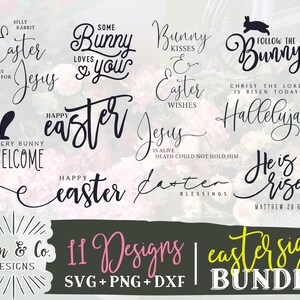 SILLY
RABBIT
Easter
IS FOR
Jesus
SOME
Bunny
LOVES
you
Bunny
KISSES
&
Easter
WISHES
FOLLOW THE
Bunny
CHRIST THE LORD
IS RISEN TODAY
Hallelujah
HAPPY
easter
Jesus
IS ALIVE
DEATH COULD NOT HOLD HIM
ERY BUNNY
WELCOME
He is
rise
MATTHEW 28:6
HAPPY
easter
Easter
BLESSINGS
& Co.
DESIGNS
11 Designs
SVG+PNG+DXF
easter sig
BUNDL